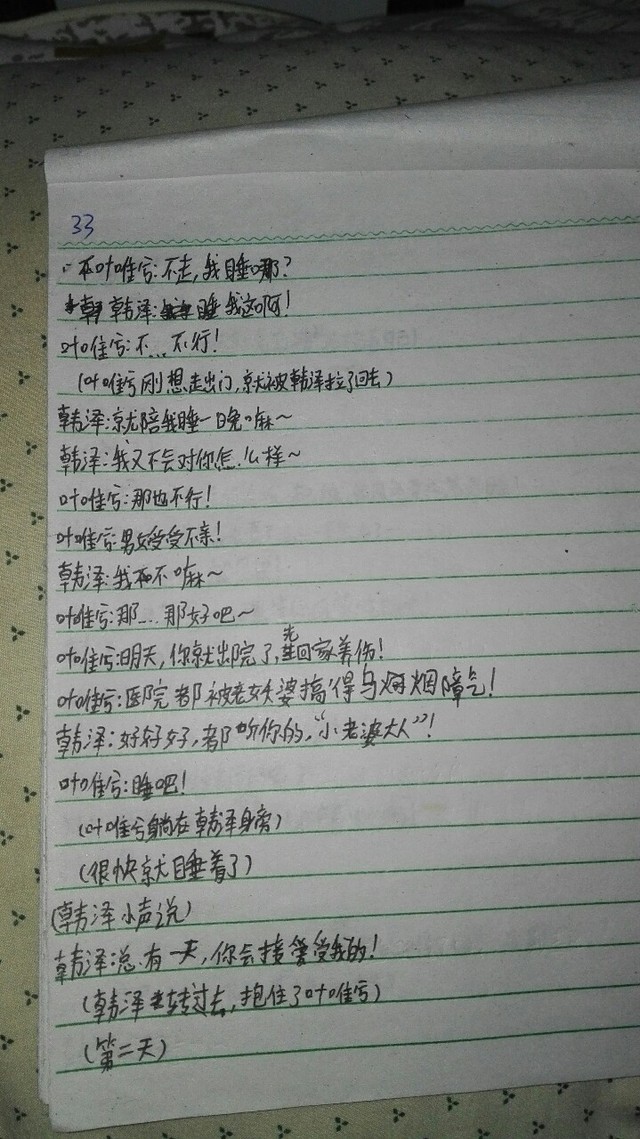 33
叶唯兮:不走,我睡哪?
韩泽:睡我这啊!
叶唯兮:不...不行!
(叶唯兮刚想走出门,就被韩泽拉了回去)
韩泽:就陪我睡一晚嘛~
韩泽:我又不会对你怎么样~
叶唯兮:那也不行!
叶唯兮:男女受受不亲!
韩泽:我不嘛~
叶唯兮:那...那好吧~
叶唯兮:明天,你就出院了,先回家养伤!
叶唯兮:医院都被老女婆搞得乌烟障气!
韩泽:好好好,都听你的,“小老婆大人”!
叶唯兮:睡吧!
(叶唯兮躺在韩泽身旁)
(很快就睡着了)
(韩泽小声说)
韩泽:总有一天,你会接受我的!
(韩泽转过去,抱住了叶唯兮)
(第二天)